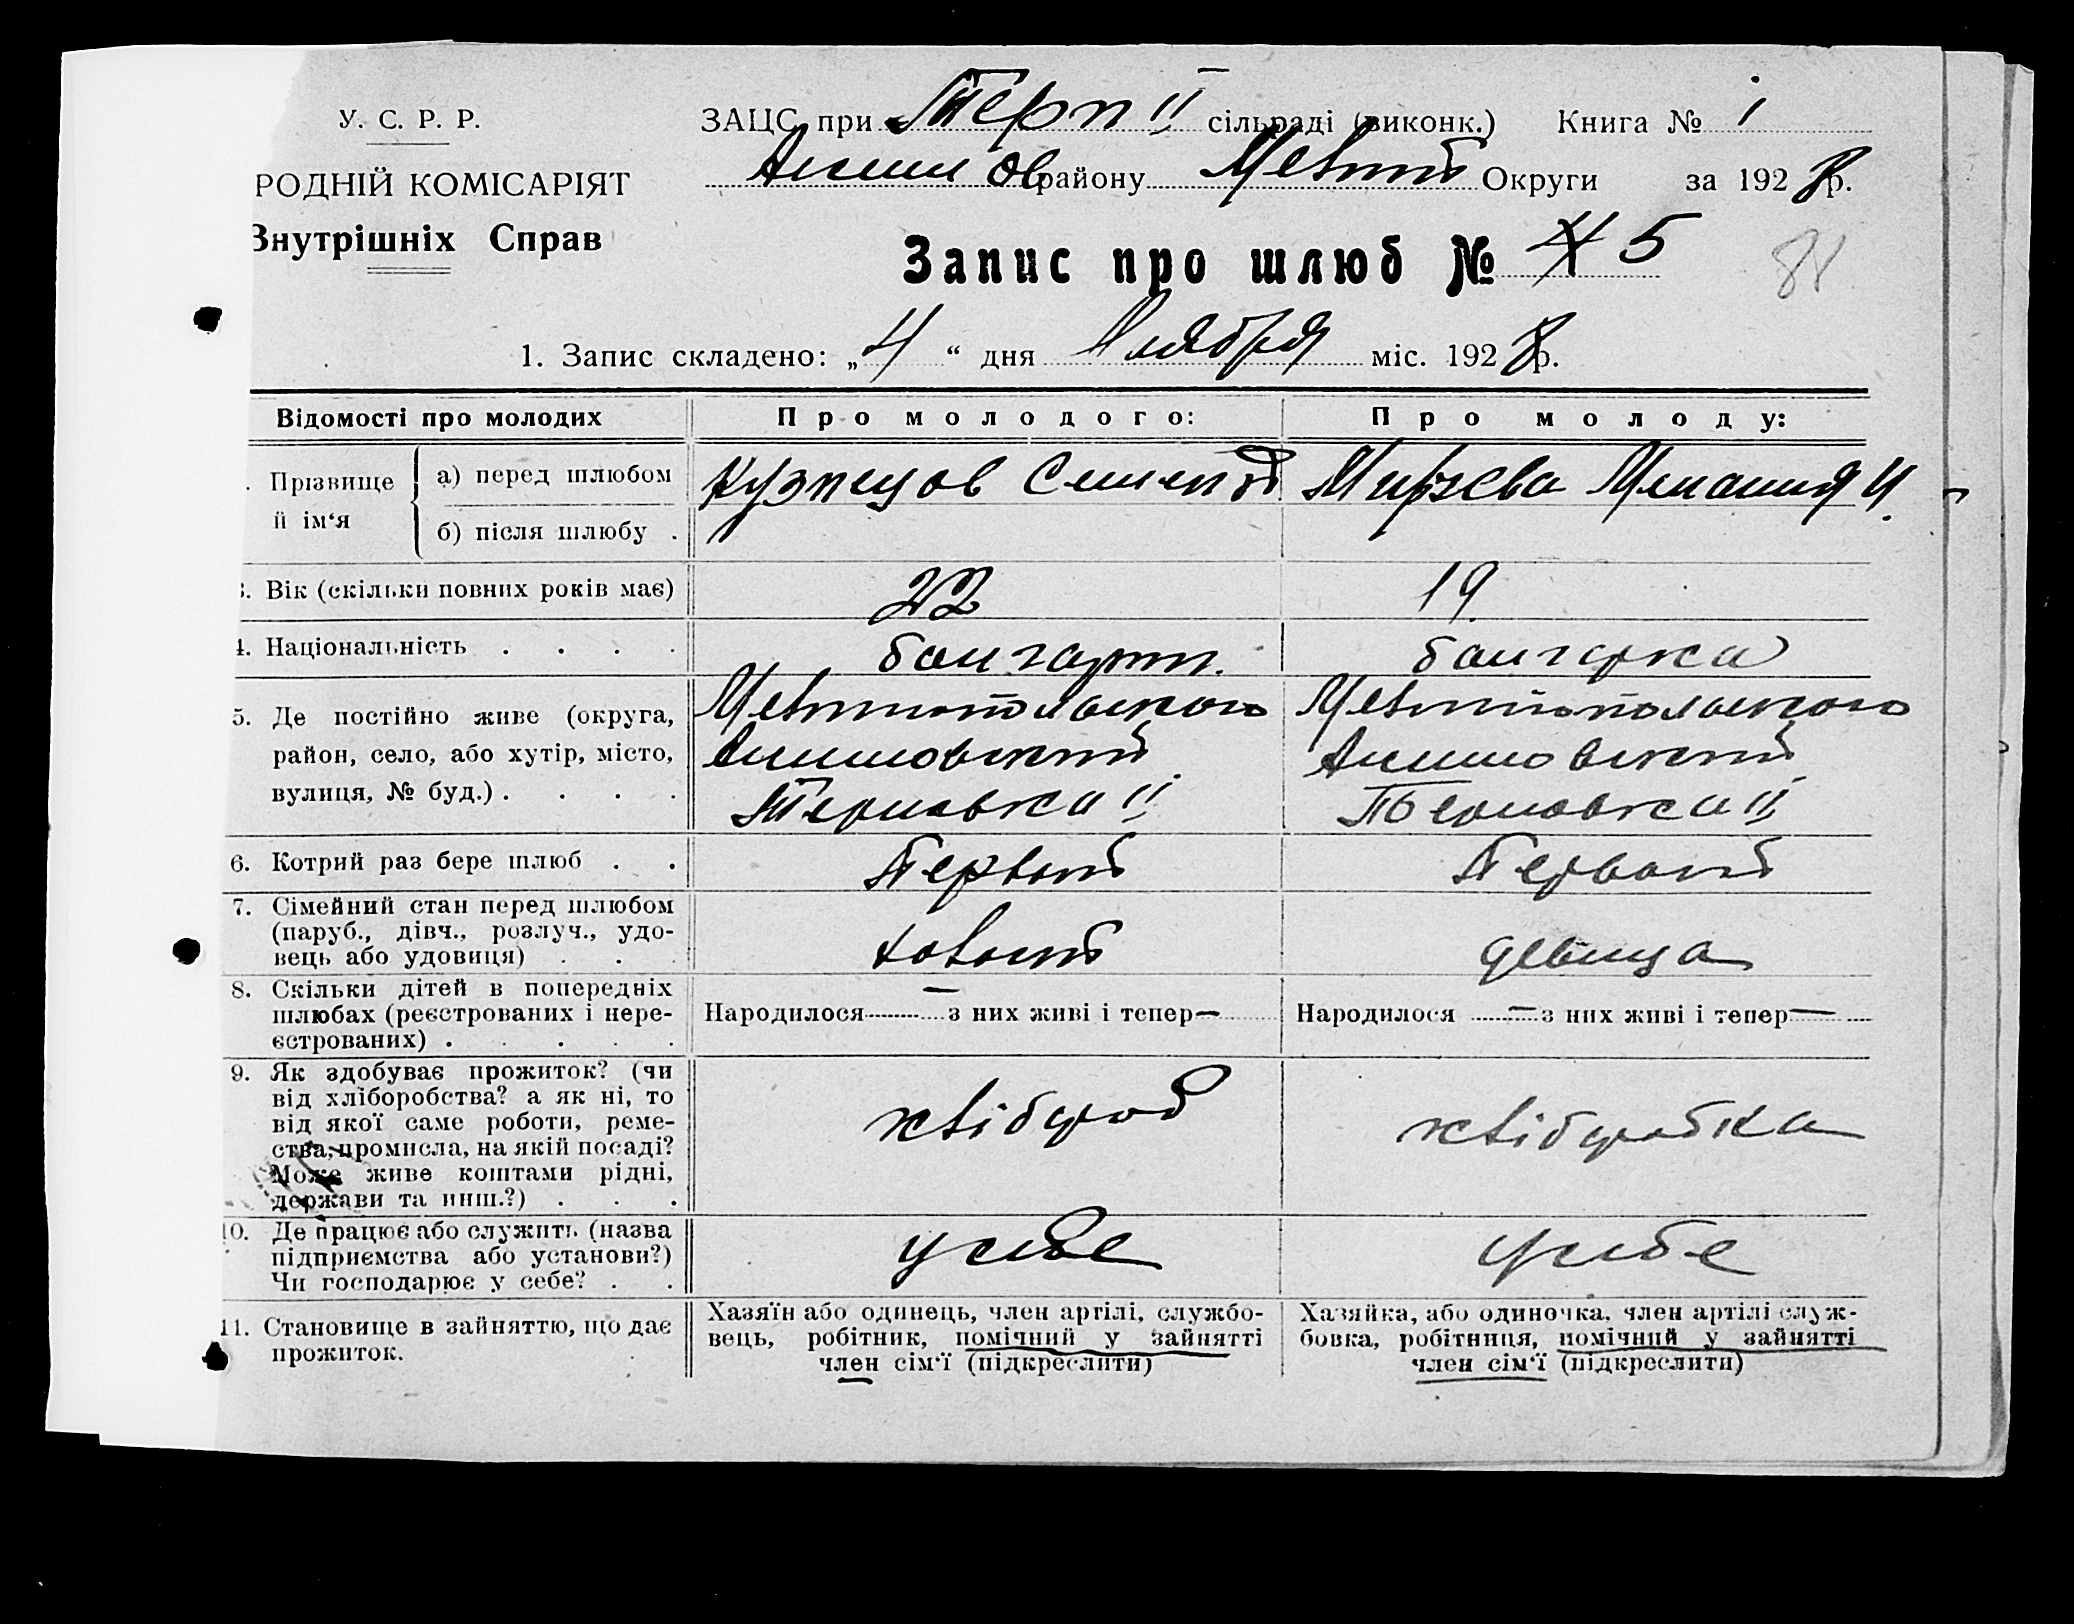 У. С. Р. Р.
РОДНІЙ КОМІСАРІЯТ
Внутрішніх Справ
ЗАЦС при Терн II сільраді (виконк.) Книга № 1
Акимов району Меліт Округи за 1928 р.
Запис про шлюб № 5
81
1. Запис складено: „4“ дня Ноября міс. 1928 р.
Відомості про молодих Про молодого: Про молоду:
Прізвище й ім‘я
а) перед шлюбом Кузнецов Семен Мирзева Мелания И.
б) після шлюбу .
3. Вік (скільки повних років має) 22 19
4. Національність . . . . болгарин. болгарка
5. Де постійно живе (округа, Мелитопольского Мелитопольского
район, село, або хутір, місто, Акимовский Акимовский
вулиця, № буд.) . . . . . Терновка II Терновка II
6. Котрий раз бере шлюб . . Первый Первый
7. Сімейний стан перед шлюбом
(паруб., дівч., розлуч., удо-
вець або удовиця) . . . холост девица
8. Скільки дітей в попередніх
шлюбах (реєстрованих і нере- Народилося — з них живі і тепер — Народилося — з них живі і тепер —
єстрованих) . . . . .
9. Як здобуває прожиток? (чи
від хліборобства? а як ні, то
від якої саме роботи, реме- хлібороб хліборобка
ства, промисла, на якій посаді?
Може живе коштами рідні,
держави та инш.?) . . .
10. Де працює або служить (назва
підприємства або установи?) у себе у себе
Чи господарює у себе? . .
11. Становище в зайняттю, що дає
прожиток.
Хазяїн або одинець, член артілі, службо-
вець, робітник, помічний у зайнятті
член сім‘ї (підкреслити)
Хазяйка, або одиночка, член артілі служ-
бовка, робітниця, помічний у зайнятті
член сім‘ї (підкреслити)